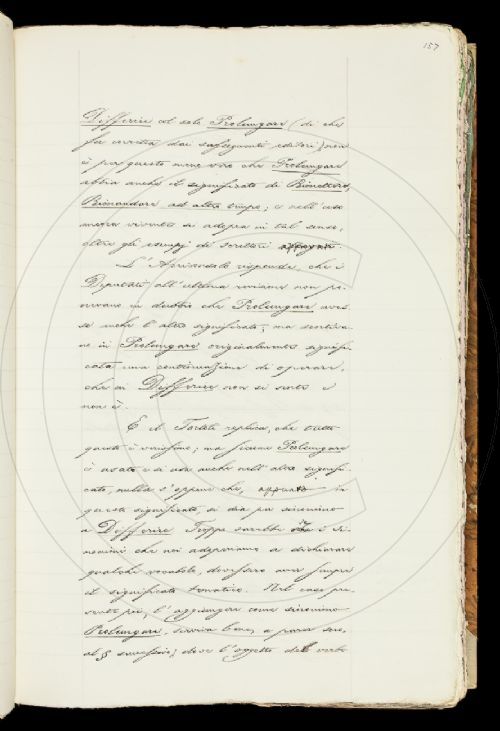 157
Differire col solo Prolungare (di che
fu avvertita dai susseguenti editori), non
è per questo meno vero che Prolungare
abbia anche il significato di Rimettere,
Rimandare ad altro tempo; e nell'uso
ancora vivente si adopra in tal senso,
oltre gli esempi di scrittori
L'Arciconsolo risponde, che i
Deputati all'ultima revisione non po-
nevano in dubbio che Prolungare aves-
se anche l'altro significato; ma sentiva-
no in Prolungare originalmente signifi-
cata una continuazione di operare,
che in Differire non si sente e
non è.
E il Tortoli replica, che tutto
questo è verissimo; ma siccome Prolungare
si usato e si usa anche nell'altro signifi-
cato, nulla s'oppone che, appunto in
questo significato, si dia per sinonimo
a Differire. Troppo sarebbe se i si-
nonimi che noi adoperiamo a dichiarare
qualche vocabolo, dovessero aver sempre
il significato tematico. Nel caso pre-
sente poi, l'aggiungere come sinonimo
Prolungare, serviva bene, a parer suo,
al § successivo; dove l'oggetto del verbo